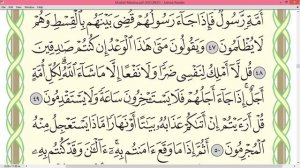 أُمَّةٍ رَّسُولٌ فَإِذَا جَاءَ رَسُولُهُمْ قُضِىَ بَيْنَهُم بِالْقِسْطِ وَهُمْ
لَا يُظْلَمُونَ ٤٧ وَيَقُولُونَ مَتَىٰ هَٰذَا الْوَعْدُ إِن كُنتُمْ صَٰدِقِينَ
٤٨ قُل لَّا أَمْلِكُ لِنَفْسِى ضَرًّا وَلَا نَفْعًا إِلَّا مَا شَاءَ اللَّهُ لِكُلِّ أُمَّةٍ
أَجَلٌ إِذَا جَاءَ أَجَلُهُمْ فَلَا يَسْتَـْٔخِرُونَ سَاعَةً وَلَا يَسْتَقْدِمُونَ ٤٩
قُلْ أَرَءَيْتُمْ إِنْ أَتَىٰكُمْ عَذَابُهُ بَيَٰتًا أَوْ نَهَارًا مَّاذَا يَسْتَعْجِلُ مِنْهُ
الْمُجْرِمُونَ ٥٠ أَثُمَّ إِذَا مَا وَقَعَ ءَامَنتُم بِهِ ءَآلْـَٰٔنَ وَقَدْ كُنتُم بِهِ